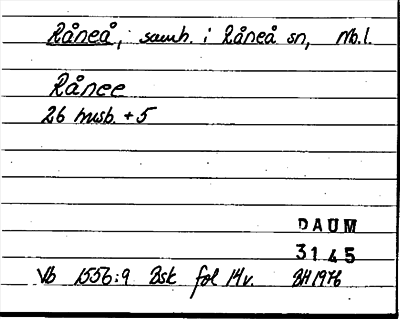 Råneå, samh. i Råneå sn, Nb.l.
Rånee
26 husb. + 5
DAUM
3145
Vb 1556:9 Bsk fol 14v. BH 1976